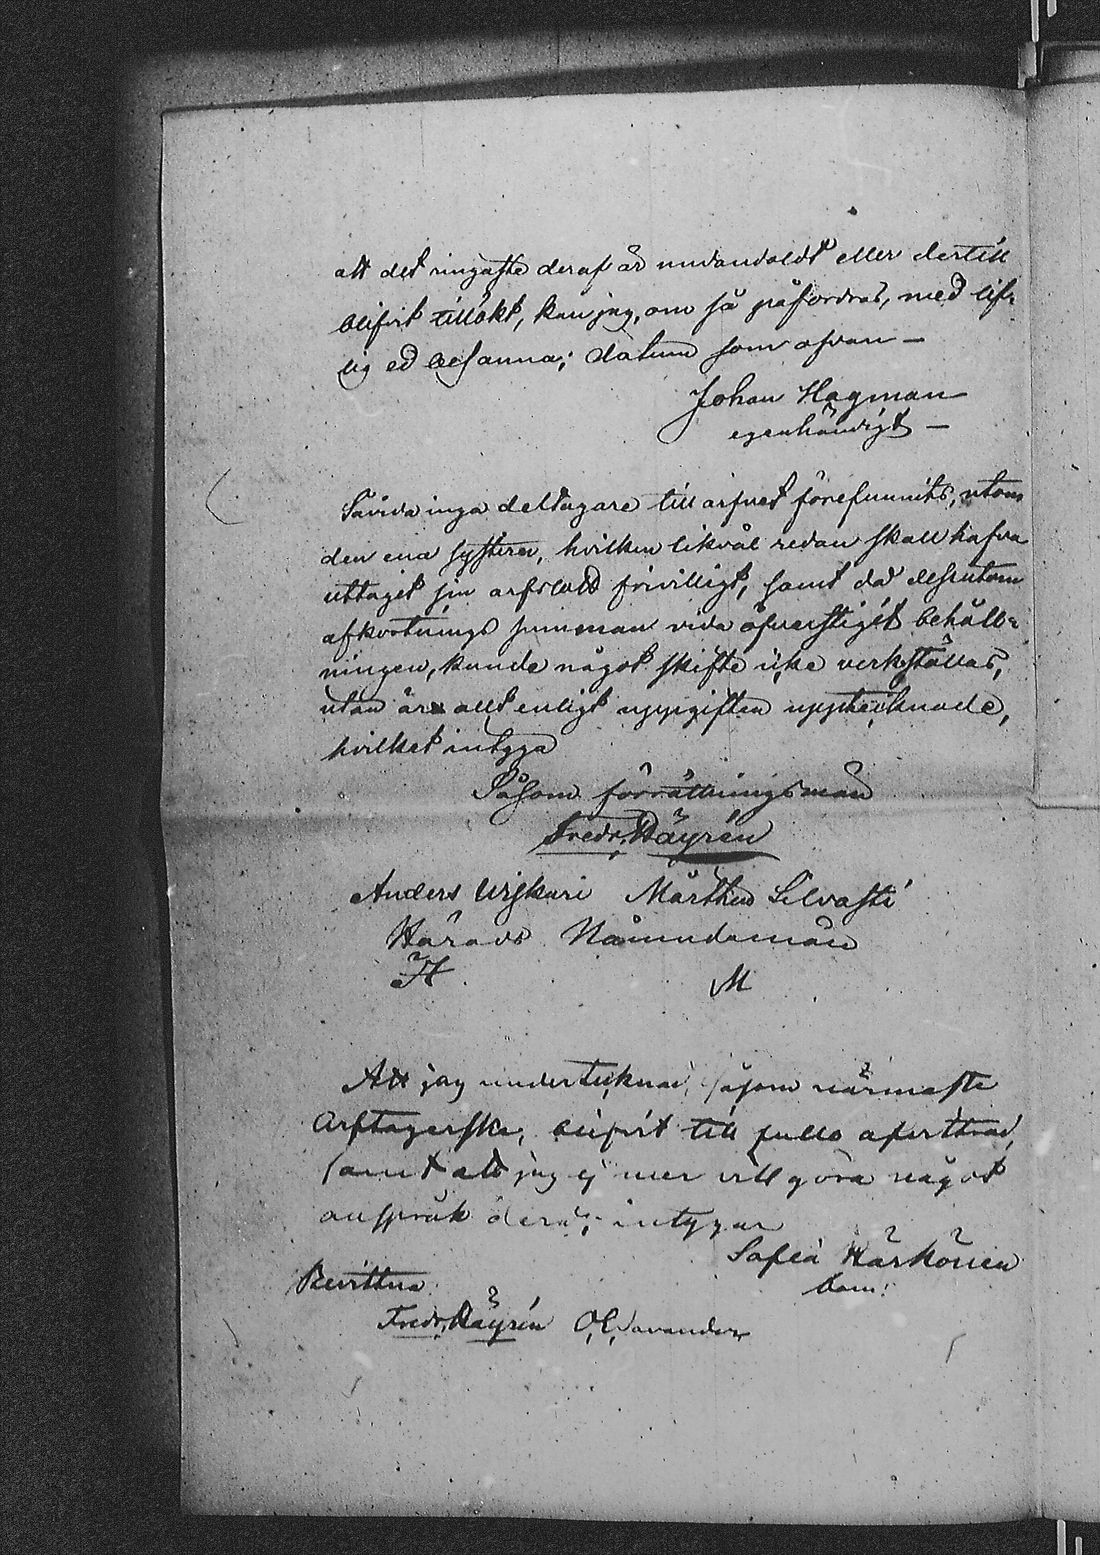 att det ringaste deraf är undandoldt eller dertill
blifvit tillökt, kan jag, om så påfordras, med lif-
lig ed besanna; datum som ofvan –
Johan Hagman
egenhändigt –
Såvida inga deltagare till arfvet förefunnits, utom
den ena systern, hvilken likväl redan skall hafva
uttagit sin arfslott frivilligt, samt då dessutom
afkortnings summan vida öfverstigit behåll-
ningen, kunde något skifte icke verkställas,
utan är allt enligt uppgiften upptecknade,
hvilket intyga
Såsom förrättningsmän
Fredr. Häyrén
Anders Uiskari Mårthen Silvasti
Härads Nämndemän
M
Att jag undertecknad, såsom närmaste
Arftagerska, blifvit till fullo afvittrad,
samt att jag ej mer vill göra något
anspråk derå, intygar
Sofia Härkönen
Bevittna
Fredr. Häyrén